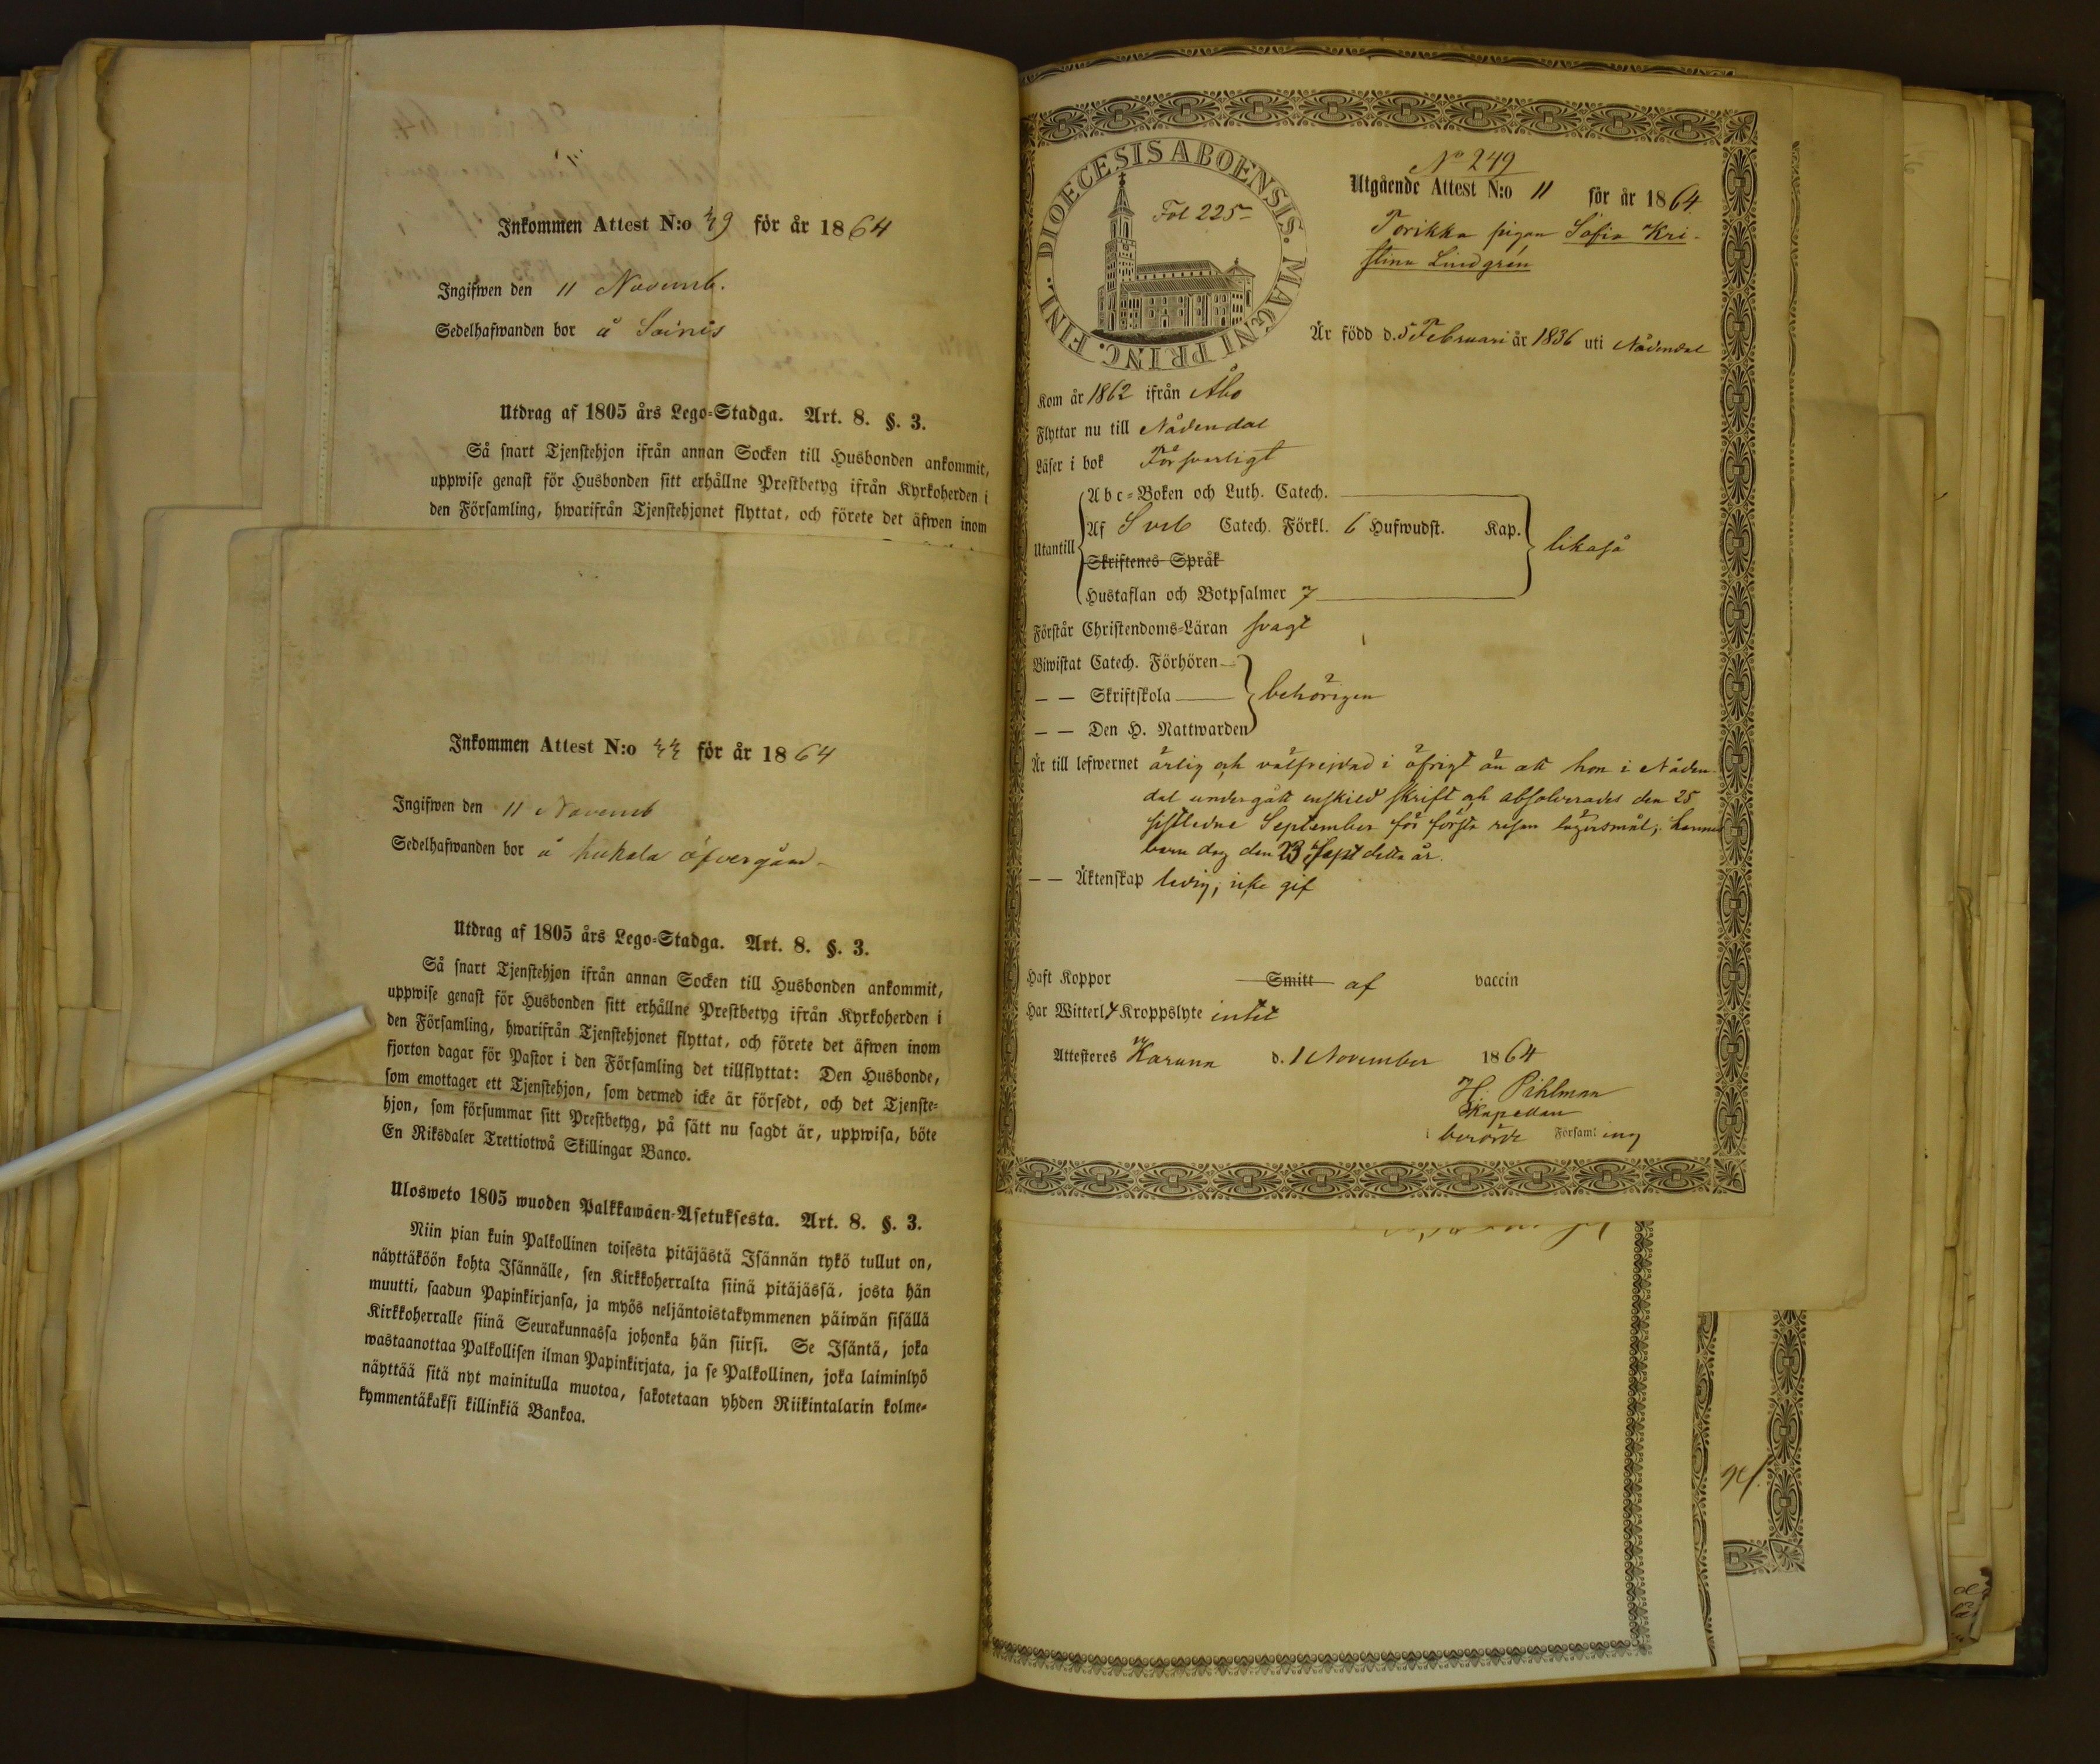 Inkommen Attest N:o 39 för år 1864
Ingifwen den 11 Novemb.
Sedelhafwanden bor å Soinis
Utdrag af 1805 års Lego-Stadga. Art. 8. §. 3.
Så snart Tjenstehjon ifrån annan Socken till Husbonden ankommit,
uppwise genast för Husbonden sitt erhållne Prestbetyg ifrån Kyrkoherden i
den Församling, hwarifrån Tjenstehjonet flyttat, och förete det äfwen inom
Inkommen Attest N:o för år 1864
Ingifwen den 11 Novemb
Sedelhafwanden bor å
Utdrag af 1805 års Lego-Stadga. Art. 8. §. 3.
Så snart Tjenstehjon ifrån annan Socken till Husbonden ankommit,
uppwise genast för Husbonden sitt erhållne Prestbetyg ifrån Kyrkoherden i
den Församling, hwarifrån Tjenstehjonet flyttat, och förete det äfwen inom
fjorton dagar för Pastor i den Församling det tillflyttat: Den Husbonde,
som emottager ett Tjenstehjon, som dermed icke är försedt, och det Tjenste-
hjon, som försummar sitt Prestbetyg, på sätt nu sagdt är, uppwisa, böte
En Riksdaler Trettiotwå Skillingar Banco.
Ulosweto 1805 wuoden Palkkawäen-Asetuksesta. Art. 8. §. 3.
Niin pian kuin Palkollinen toisesta pitäjästä Isännän tykö tullut on,
näyttäköön kohta Isännälle, sen Kirkkoherralta siinä pitäjässä, josta hän
muutti, saadun Papinkirjansa, ja myös neljäntoistakymmenen päiwän sisällä
Kirkkoherralle siinä Seurakunnassa johonka hän siirsi. Se Isäntä, joka
wastaanottaa Palkollisen ilman Papinkirjata, ja se Palkollinen, joka laiminlyö
näyttää sitä nyt mainitulla muotoa, sakotetaan yhden Riikintalarin kolme-
kymmentäkaksi killinkiä Bankoa.
DIOECESIS ABOENSIS. MAGNI PRINC. FINL.
Fol 225
No 249
Utgående Attest N:o 11 för år 1864
Torikka pigan Sofia Kri-
stina Lindgrén
Är född d. 5 Februari år 1836 uti Nådendal
Kom år 1862 ifrån Åbo
Flyttar nu till Nådendal
Läser i bok Försvarligt
Utantill
Abc-Boken och Luth. Catech.
Af Sveb Catech. Förkl. 6 Hufwudst. Kap.
Skriftenes Språk
Hustaflan och Botpsalmer 7
likaså
Förstår Christendoms-Läran svagt
Biwistat Catech. Förhören
— — Skriftskola
— — Den H. Nattwarden
behörigen
Är till lefwernet ärlig och välfrejdad i öfrigt än att hon i Nåden-
dal undergått enskild skrift och absolverades den 25
sistledne September för första resan lägersmål; hennes
barn dog den 23 Sept detta år.
— — Äktenskap ledig; icke gif
Haft Koppor Smitt af vaccin
Har Witterl. Kroppslyte intet
Attesteres Karuna d. 1 November 1864
H. Pihlman
Kapellan
i berörde Församling